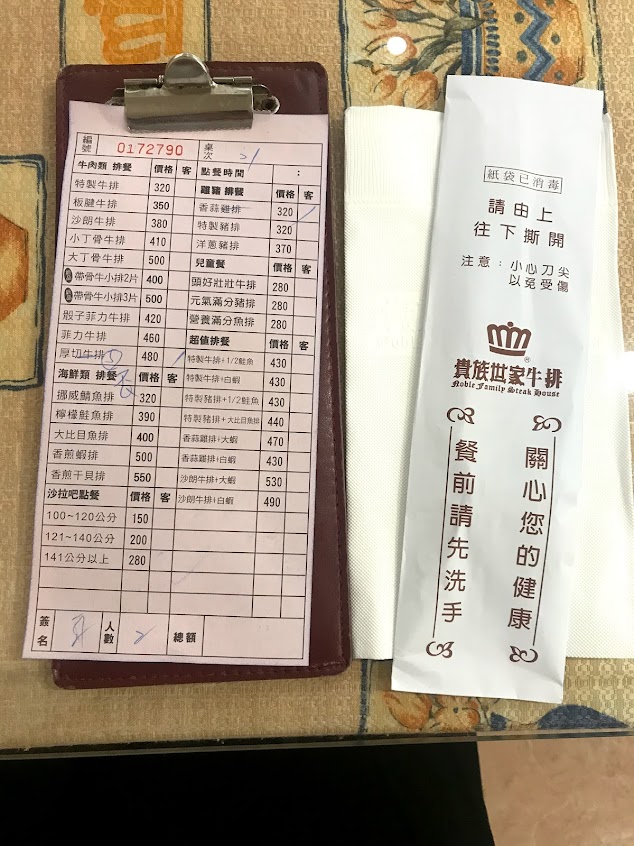 編號 0172790 桌次 21
牛肉類 排餐 價格 客
特製牛排 320
板腱牛排 350
沙朗牛排 380
小丁骨牛排 410
大丁骨牛排 500
帶骨牛小排2片 400
帶骨牛小排3片 500
骰子菲力牛排 420
菲力牛排 460
厚切牛排 480
海鮮類 排餐 價格 客
挪威鯖魚排 320
檸檬鮭魚排 390
大比目魚排 400
香煎蝦排 500
香煎干貝排 550
沙拉吧點餐 價格 客
100~120公分 150
121~140公分 200
141公分以上 280
點餐時間 :
雞豬 排餐 價格 客
香蒜雞排 320
特製豬排 320
洋蔥豬排 370
兒童餐 價格 客
頭好壯壯牛排 280
元氣滿分豬排 280
營養滿分魚排 280
超值排餐 價格 客
特製牛排+1/2鮭魚 430
特製牛排+白蝦 430
特製豬排+1/2鮭魚 430
特製豬排+大比目魚排 440
香蒜雞排+大蝦 470
香蒜雞排+白蝦 430
沙朗牛排+大蝦 530
沙朗牛排+白蝦 490
簽名 人數 2 總額
紙袋已消毒
請由上
往下撕開
注意:小心刀尖
以免受傷
®
貴族世家牛排
Noble Family Steak House
關心您的健康
餐前請先洗手